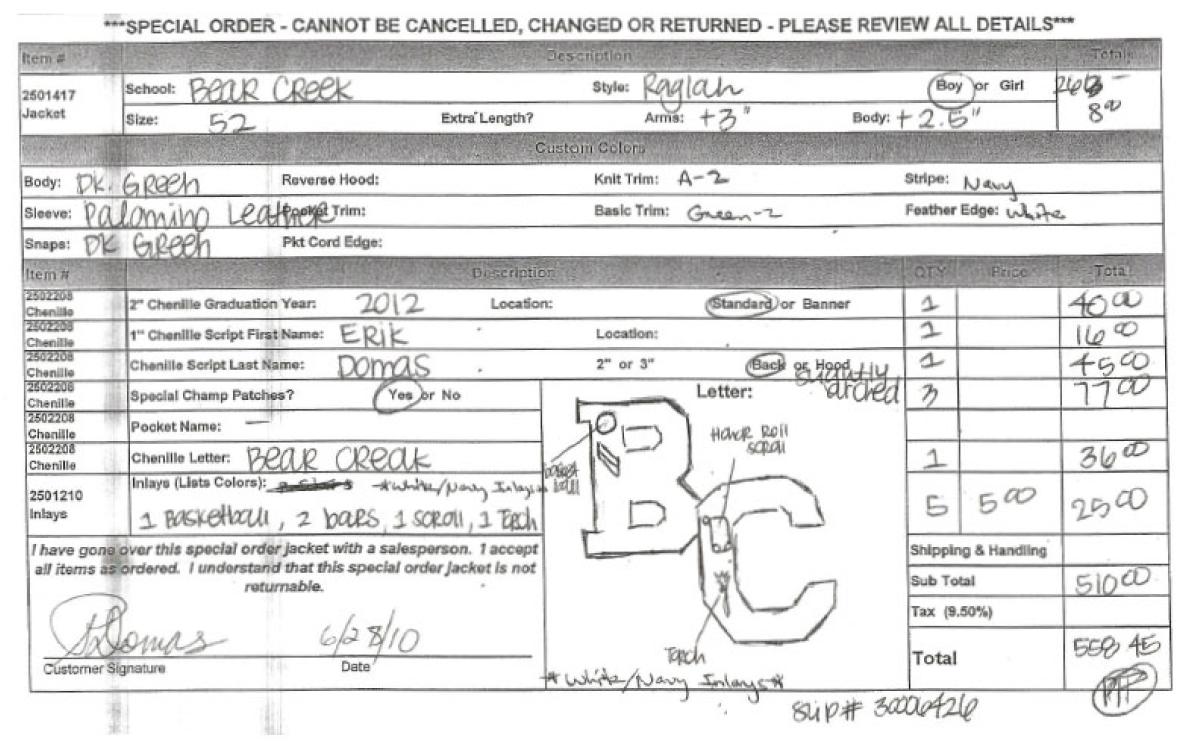 ***SPECIAL ORDER - CANNOT BE CANCELLED, CHANGED OR RETURNED - PLEASE REVIEW ALL DETAILS***
Item # Description Totals
2501417 Jacket School: BEAR CREEK Style: Raglan Boy or Girl
Size: 52 Extra Length? Arms: +3" Body: +2.5" 800
Custom Colors
Body: DK. Green Reverse Hood: Knit Trim: A-2 Stripe: Navy
Sleeve: Palomino Leather Pocket Trim: Basic Trim: Green-2 Feather Edge: White
Snaps: DK Green Pkt Cord Edge:
Item # Description QTY Price Total
2502208 Chenille 2" Chenille Graduation Year: 2012 Location: Standard or Banner 1 4000
2502208 Chenille 1" Chenille Script First Name: ERIK Location: 1 1600
2502208 Chenille Chenille Script Last Name: Domas 2" or 3" Back or Hood slightly arched 1 4500
2502208 Chenille Special Champ Patches? Yes or No Letter: 3 7700
2502208 Chenille Pocket Name: —
2502208 Chenille Chenille Letter: BEAR CREAK 1 3600
2501210 Inlays Inlays (Lists Colors): *White/Navy Inlays*
1 Basketball, 2 bars, 1 scroll, 1 Torch 5 500 2500
basket ball
Honor Roll scroll
BC
Torch
*White/Navy Inlays*
I have gone over this special order jacket with a salesperson. I accept
all items as ordered. I understand that this special order jacket is not
returnable.
Shipping & Handling
Sub Total 51000
Tax (9.50%)
Total 558 45
Domas 6/28/10
Customer Signature Date
PIF
slip# 30006426